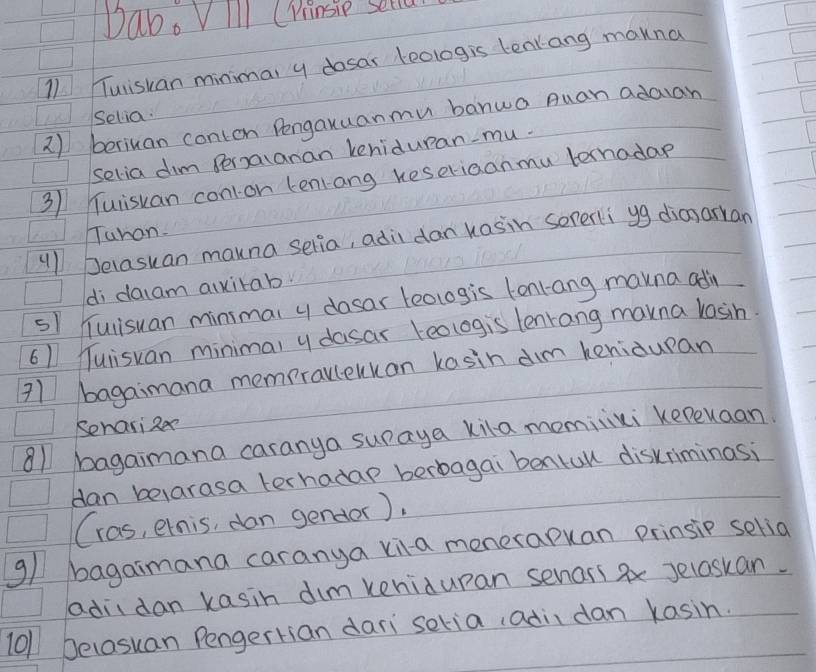 Bab. VIII (Prinsip setia
1) Tuliskan minimal 4 dasar teologis tentang makna
setia.
2) berikan contoh Pengakuanmu bahwa Allah adalah
setia dlm Perjalanan kehidupan-mu.
3) Tuliskan contoh tentang kesetiaanmu terhadap
Tuhan.
4) Jelaskan makna setia, adil dan kasih seperti yg diajarkan
di dalam alkitab.
5) Tuliskan minimal 4 dasar teologis tentang makna adil
6) Tuliskan minimal 4 dasar teologis tentang makna kasih.
7) bagaimana mempraktekkan kasih dlm kehidupan
sehari2x
8) bagaimana caranya supaya kita memiliki kepekaan.
dan belarasa terhadap berbagai bentuk diskriminasi
(ras, etnis, dan gender).
9) bagaimana caranya kita menerapkan prinsip setia
adil dan kasih dlm kehidupan sehari 2x Jelaskan-
10) Jelaskan Pengertian dari setia, adil dan kasih.